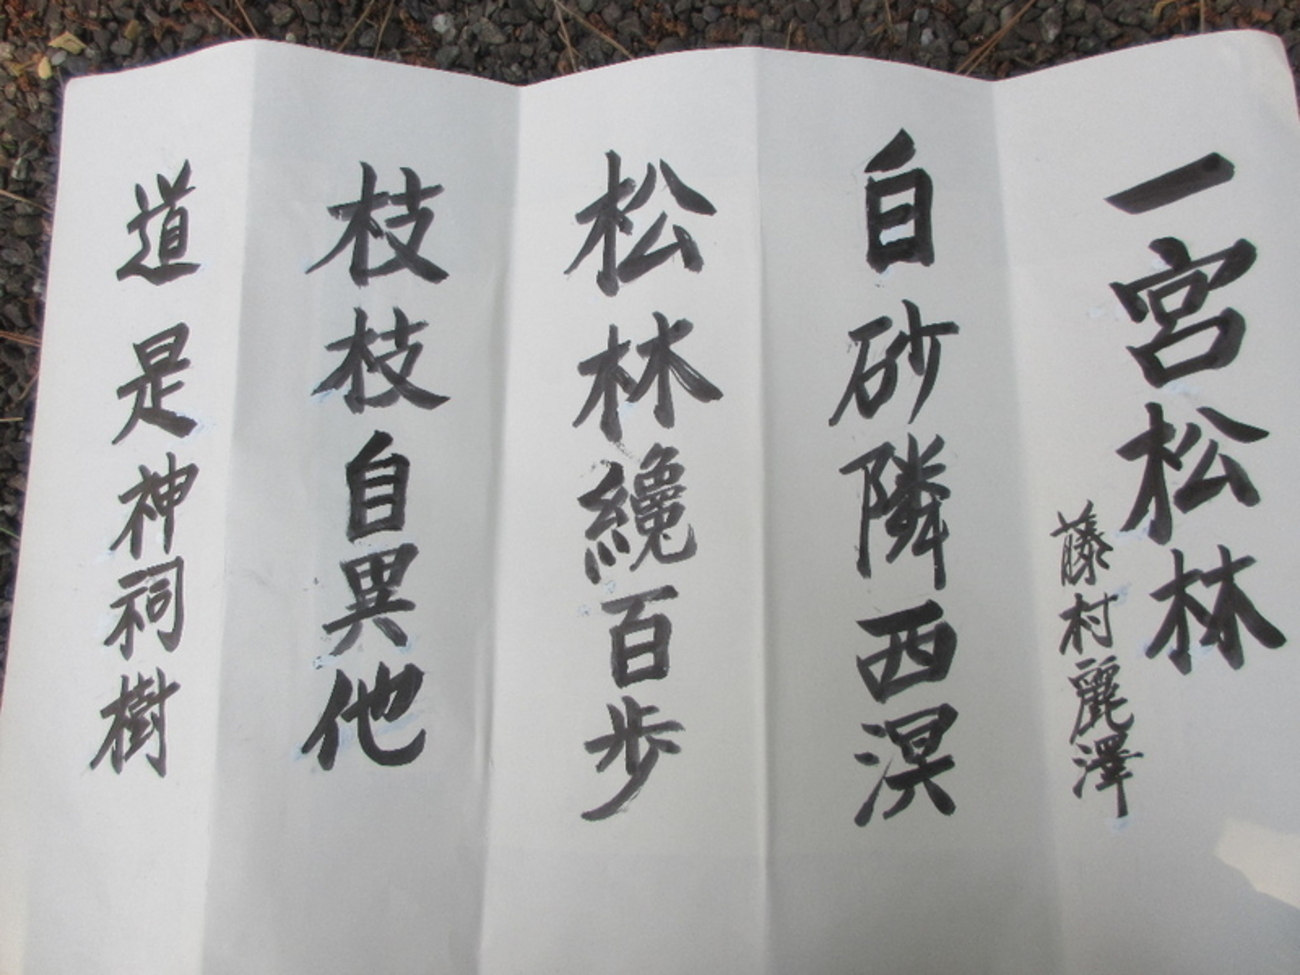 一宮松林
藤村麗澤
白砂隣西溟
松林纔百歩
枝枝自異他
道是神祠樹